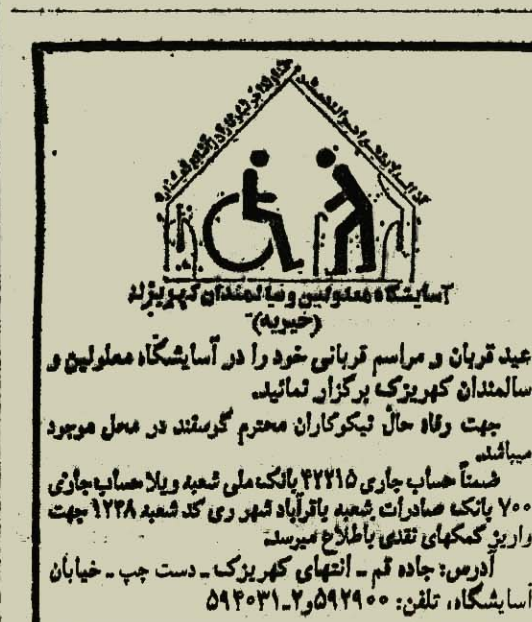 آسایشگاه معلولین و سالمندان کهریزک
(خیریه)
عید قربان و مراسم قربانی خود را در آسایشگاه معلولین و
سالمندان کهریزک برگزار نمائید.
جهت رفاه حال نیکوکاران محترم گوسفند در محل موجود
میباشد.
ضمناً حساب جاری ۴۲۲۱۵ بانک ملی شعبه ویلا حساب جاری
۷۰۰ بانک صادرات شعبه باقرآباد شهر ری کد شعبه ۱۲۳۸ جهت
واریز کمکهای نقدی باطلاع میرسد.
آدرس: جاده قم ـ انتهای کهریزک ـ دست چپ ـ خیابان
آسایشگاه، تلفن: ۵۹۲۹۰۰و۲ـ۵۹۴۰۳۱